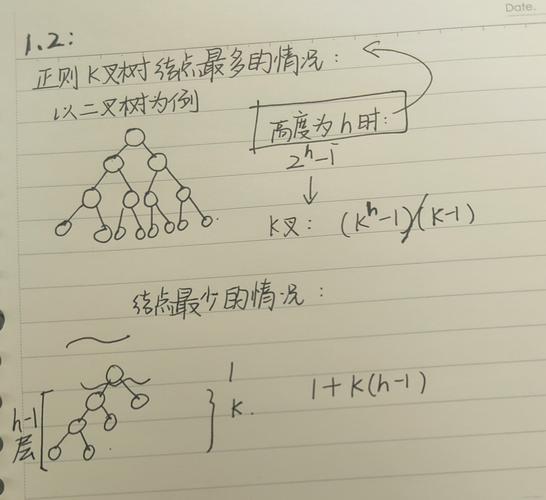 Date.
1.2:
正则K叉树结点最多的情况:
以二叉树为例
高度为h时:
2^h-1
K叉: (K^h-1)/(K-1)
结点最少的情况:
h-1
层
1
K.
1+K(h-1)